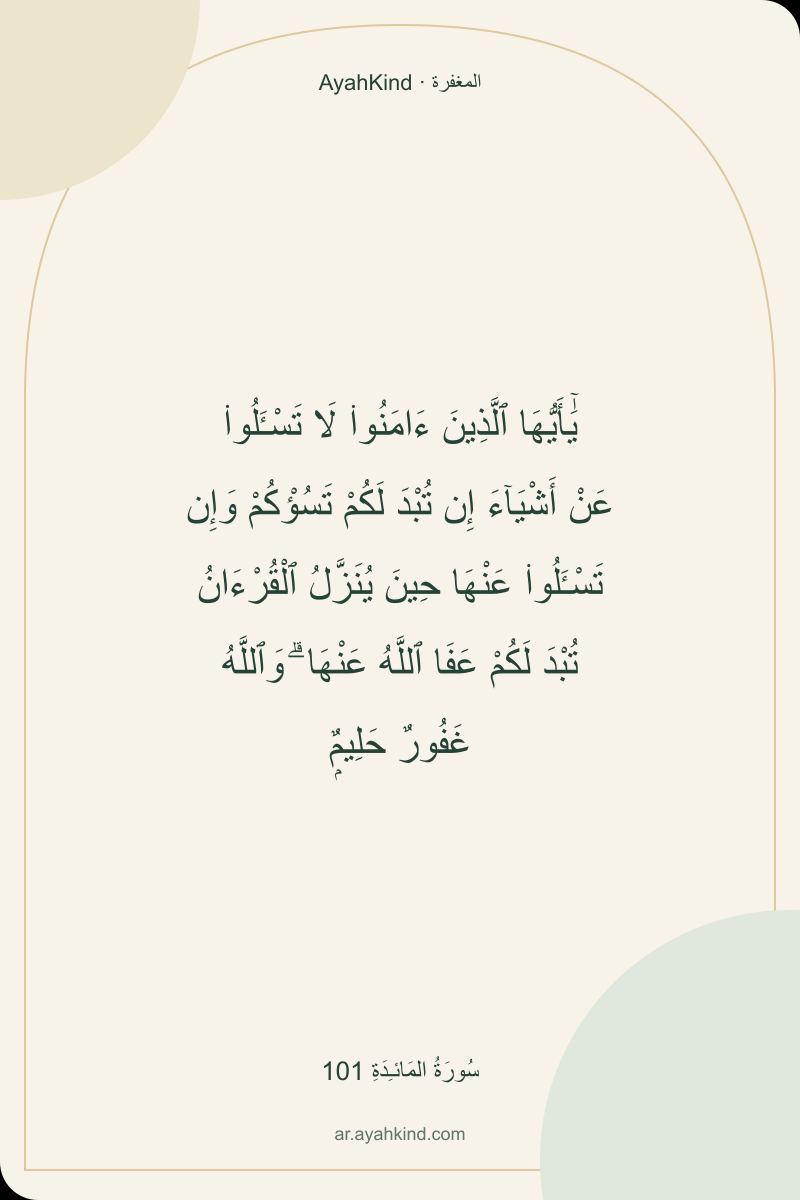 المغفرة · AyahKind
يَٰٓأَيُّهَا ٱلَّذِينَ ءَامَنُوا۟ لَا تَسْـَٔلُوا۟
عَنْ أَشْيَآءَ إِن تُبْدَ لَكُمْ تَسُؤْكُمْ وَإِن
تَسْـَٔلُوا۟ عَنْهَا حِينَ يُنَزَّلُ ٱلْقُرْءَانُ
تُبْدَ لَكُمْ عَفَا ٱللَّهُ عَنْهَا ۗ وَٱللَّهُ
غَفُورٌ حَلِيمٌۭ
سُورَةُ المَائـِدَةِ 101
ar.ayahkind.com